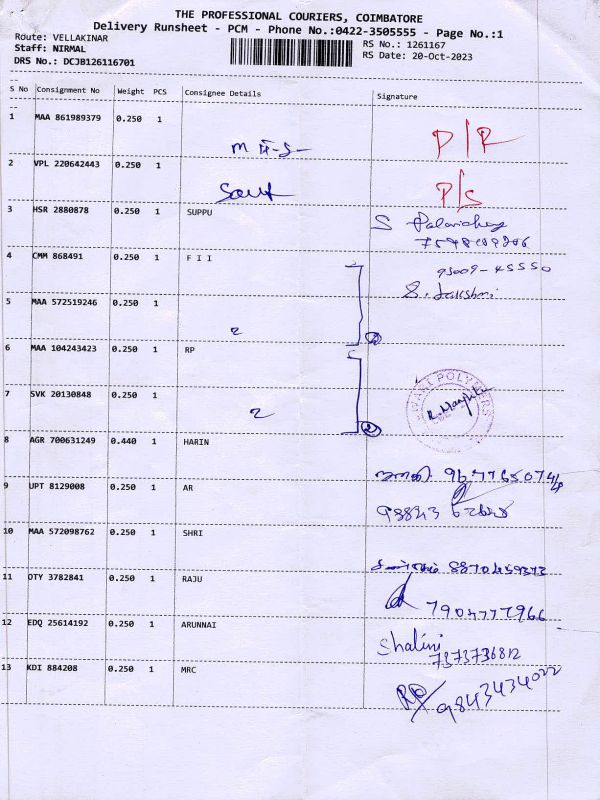 THE PROFESSIONAL COURIERS, COIMBATORE
Delivery Runsheet - PCM - Phone No.:0422-3505555 - Page No.:1
Route: VELLAKINAR
Staff: NIRMAL
DRS No.: DCJB126116701
RS No.: 1261167
RS Date: 20-Oct-2023
S No Consignment No Weight PCS Consignee Details Signature
1 MAA 861989379 0.250 1
P/R
2 VPL 220642443 0.250 1
P/S
3 HSR 2880878 0.250 1 SUPPU
S
4 CMM 868491 0.250 1 F I I
95009-45550
S. Lakshmi
5 MAA 572519246 0.250 1
2
2
6 MAA 104243423 0.250 1 RP
7 SVK 20130848 0.250 1
2
2
POLYMERS
8 AGR 700631249 0.440 1 HARIN
9 UPT 8129008 0.250 1 AR
10 MAA 572098762 0.250 1 SHRI
8870459373
11 OTY 3782841 0.250 1 RAJU
7904777966
12 EDQ 25614192 0.250 1 ARUNNAI
Shalini
7373736812
13 KDI 884208 0.250 1 MRC
9843434022